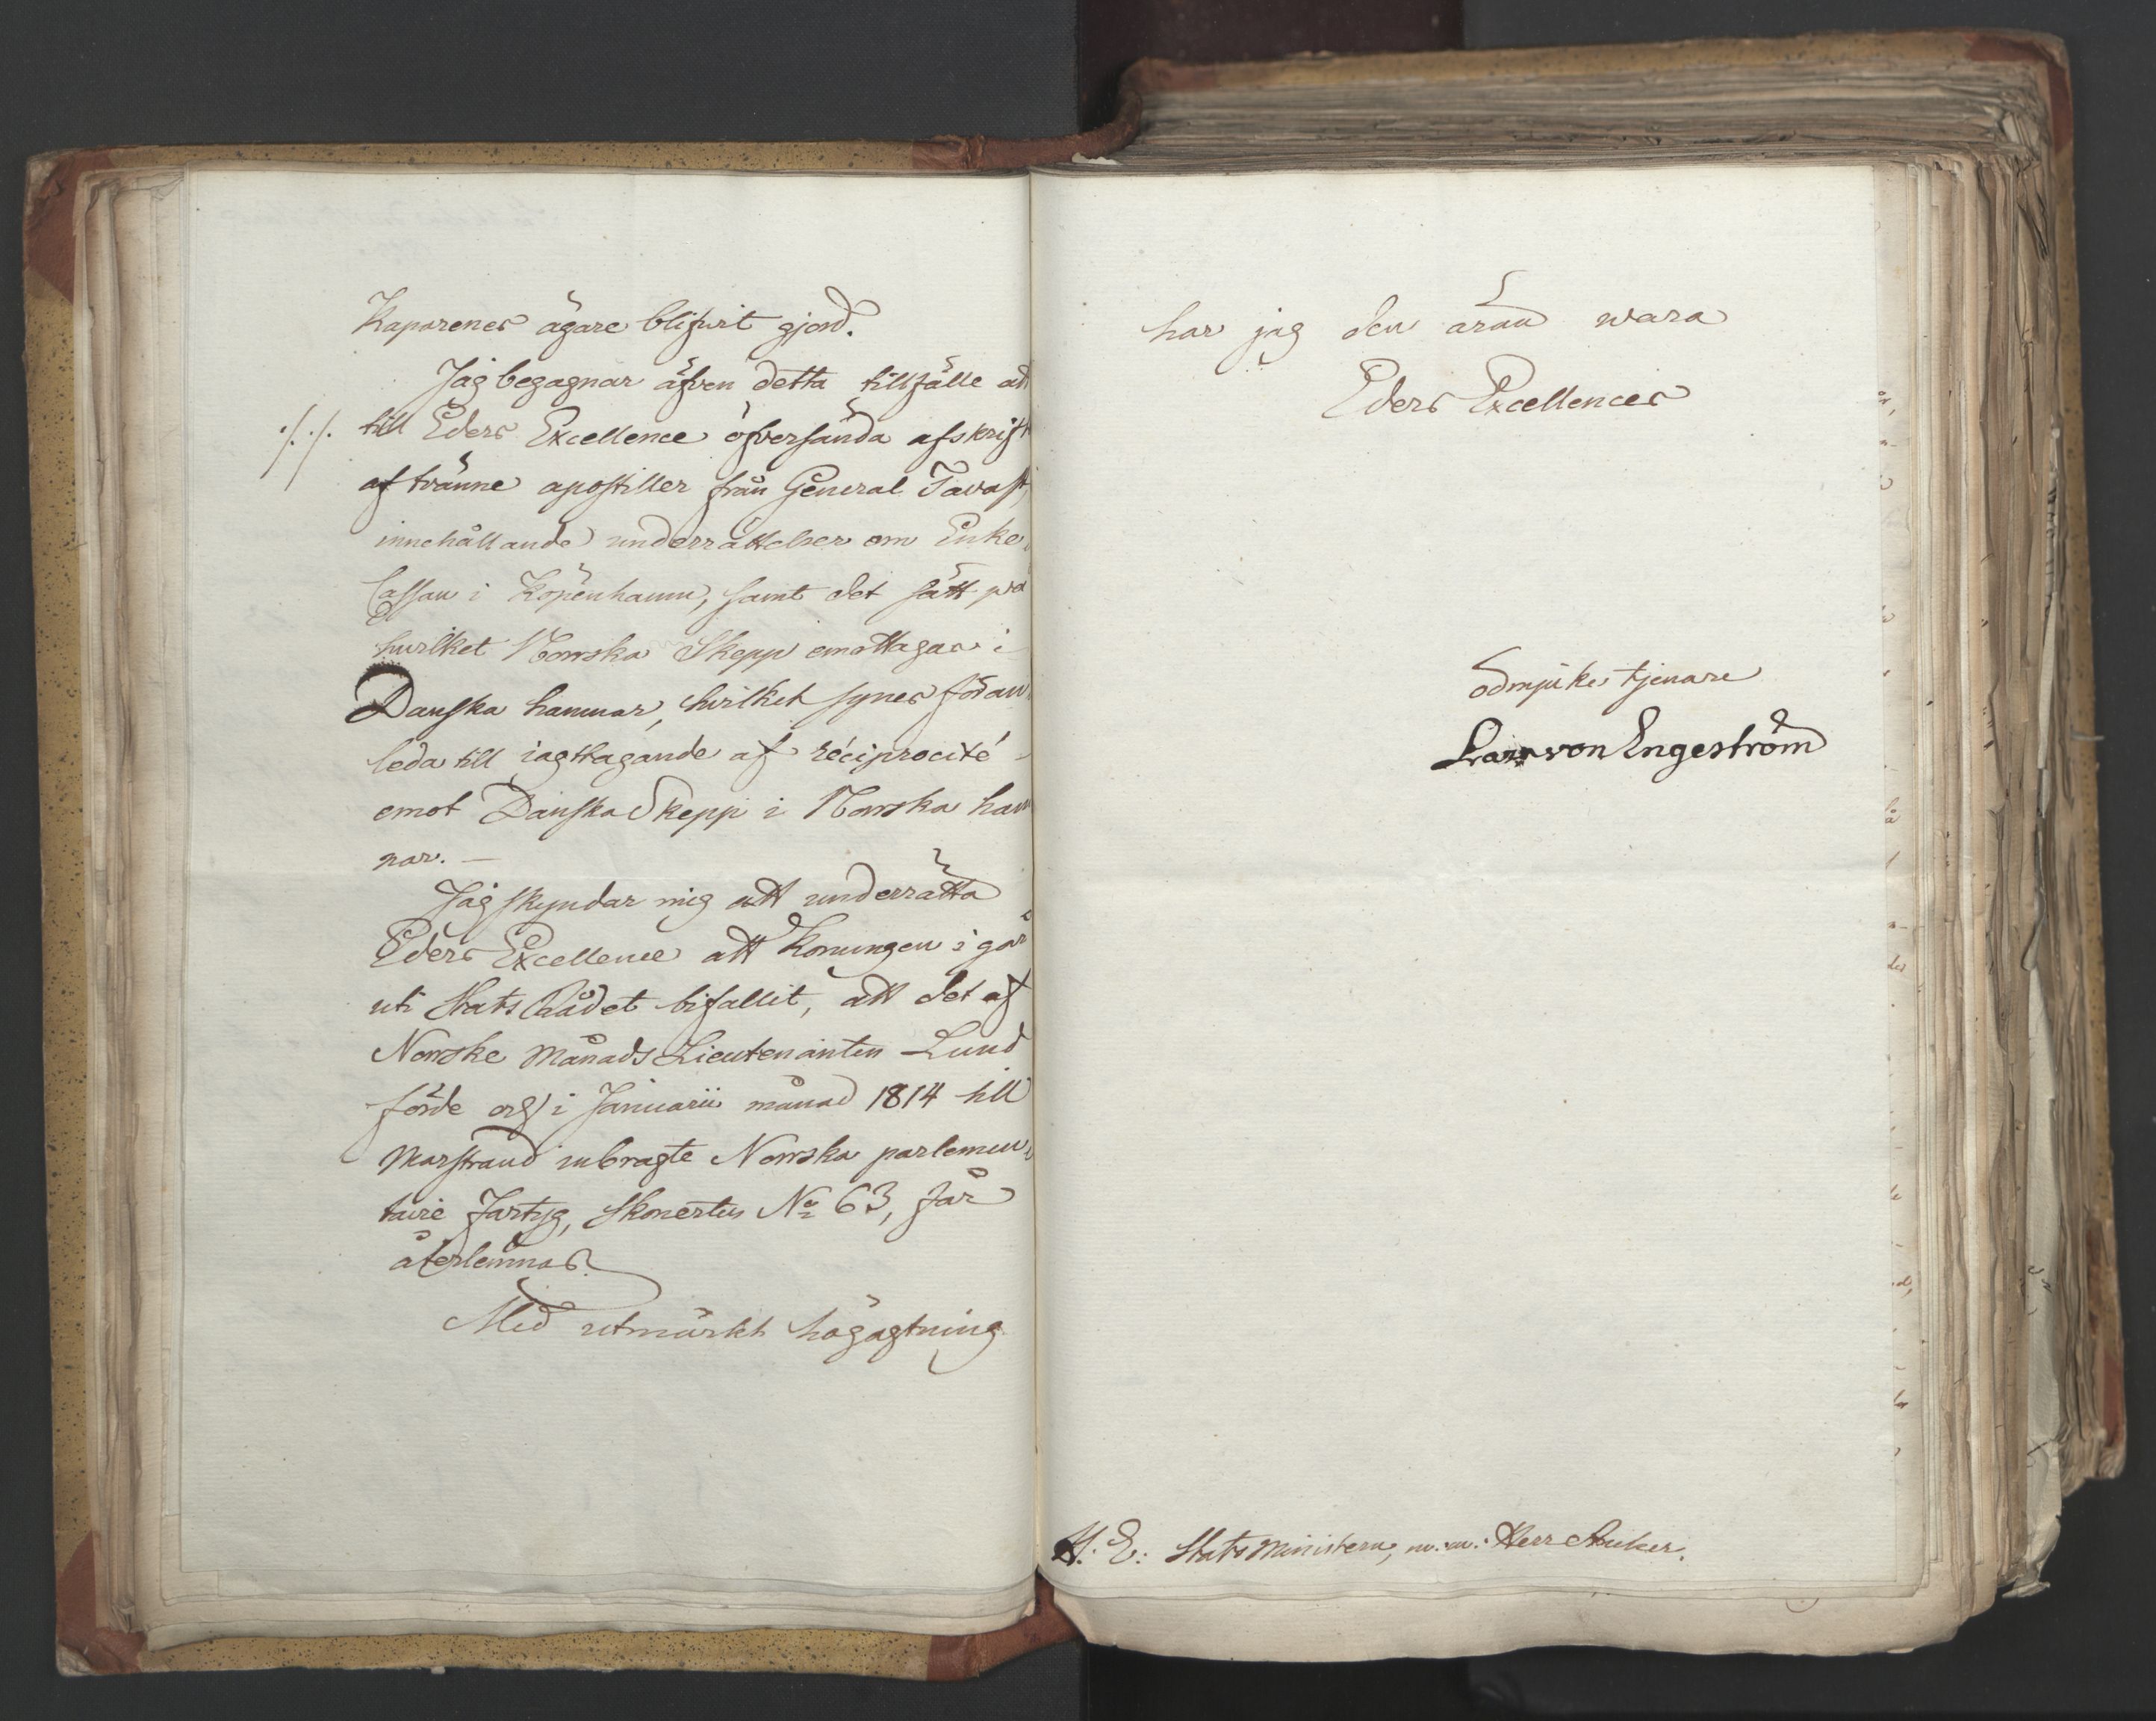 Kaparenes ägare blifvit gjord.
Jag begagnar äfven detta tillfälle att
./. ./. till Eders Excellence öfversända afskrift
af tvänne apostiller från General Tavast,
innehållande underrättelser om Enke
Cassan i Köpenhamn, samt det sätt på
hvilket Norrska Skepp emottagas i
Danska hamnar, hvilket synes föran
leda till iagttagande af réciprocité
emot Danska Skepp i Norrska ham
nar. —
Jag skyndar mig att underrätta
Eders Excellence att Konungen i går
uti Stats Rådet bifallit, att det af
Norrske Månads Lieutenanten Lund
förde och i Januarii månad 1814 till
Marstrand inbragte Norrska parlemen
taire Fartyg, Skonerten No 63, får
återlemnas.
Med utmärkt högagtning
har jag den äran wara
Eders Excellences
ödmjuke tjenare
Lars von Engeström
H. E. Stats Ministern, m. m. Herr Anker.